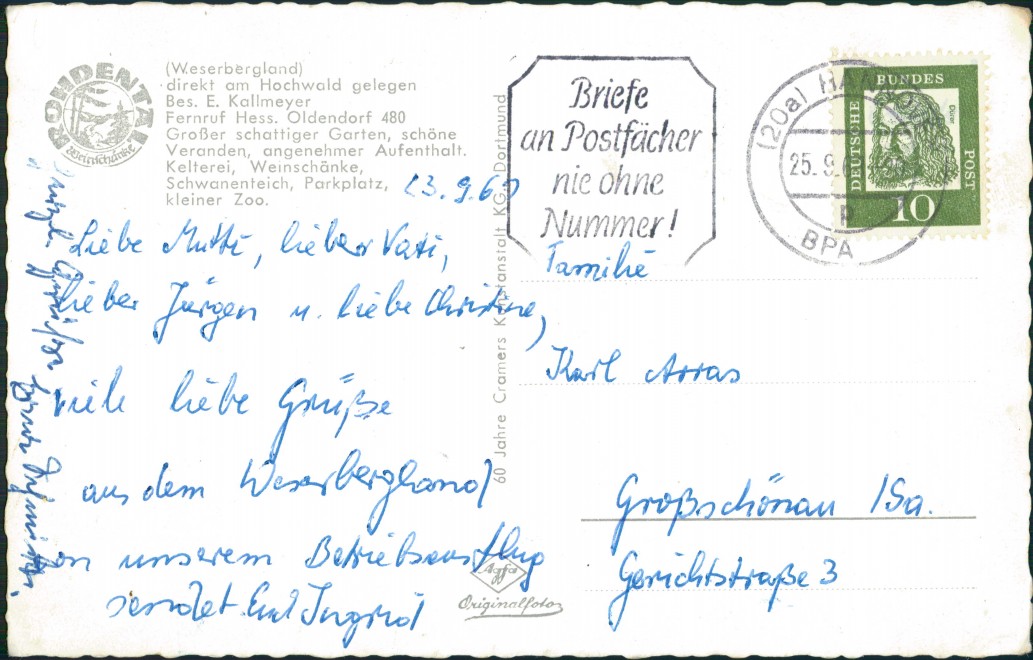 ROHDENTAL
Weinschänke
(Weserbergland)
direkt am Hochwald gelegen
Bes. E. Kallmeyer
Fernruf Hess. Oldendorf 480
Großer schattiger Garten, schöne
Veranden, angenehmer Aufenthalt.
Kelterei, Weinschänke,
Schwanenteich, Parkplatz,
kleiner Zoo.
23.9.6
Liebe Mutti, lieber Vati,
lieber Jürgen u. liebe Christine,
viele liebe Grüße
aus dem Weserbergland
von unserem Betriebsausflug
sendet Euch Ingrid
60 Jahre Cramers Kunstanstalt KG., Dortmund
Agfa
Originalfoto
Briefe
an Postfächer
nie ohne
Nummer!
(20a) HANNOVER
25. 9. 6
p
BPA
DEUTSCHE
BUNDES
POST
10
Familie
Karl Arras
Großschönau /Sa.
Gerichtstraße 3